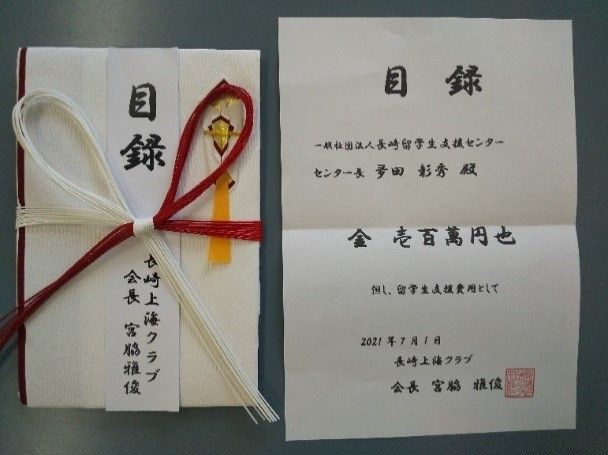 目録
長崎上海クラブ
会長 宮脇雅俊
目録
一般社団法人長崎留学生支援センター
センター長 多田 彰秀 殿
金 壱百萬円也
但し、留学生支援費用として
2021年7月1日
長崎上海クラブ
会長 宮脇 雅俊